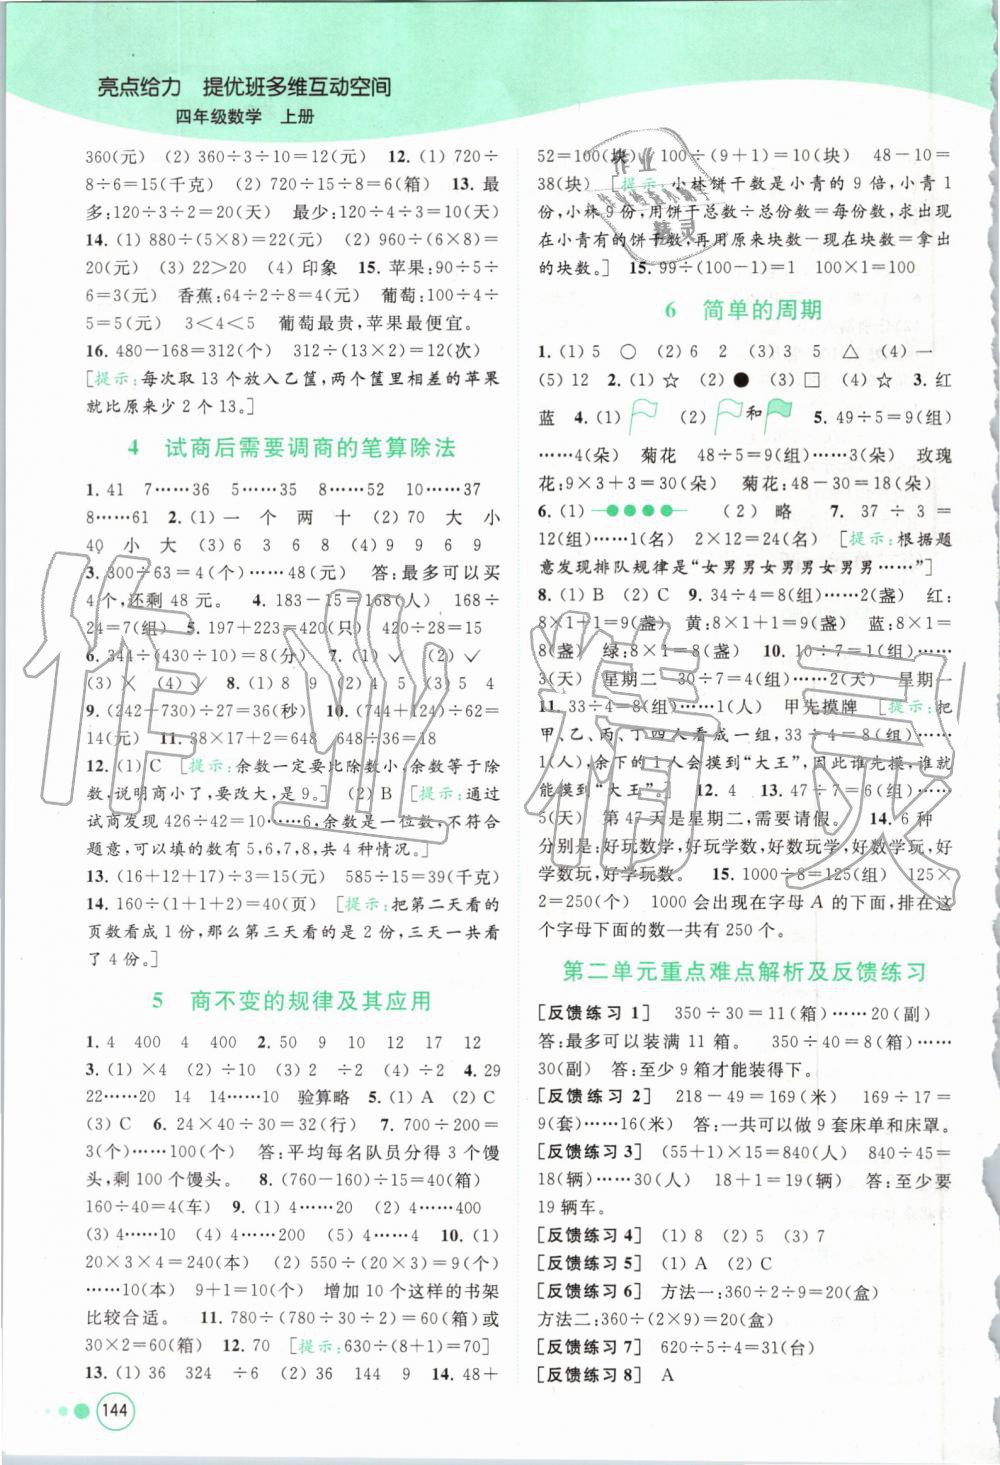 亮点给力 提优班多维互动空间
四年级数学 上册
360(元) (2) 360÷3÷10=12(元) 12. (1) 720÷
8÷6=15(千克) 720÷15÷8=6(箱) 13. 最
多:120÷3÷2=20(天) 最少:120÷4÷3=10(天)
14. (1) 880÷(5×8)=22(元) (2) 960÷(6×8)=
20(元) (3) 22>20 (4) 印象 15. 苹果:90÷5÷
6=3(元) 香蕉:64÷2÷8=4(元) 葡萄:100÷4÷
5=5(元) 3<4<5 葡萄最贵,苹果最便宜。
16. 480-168=312(个) 312÷(13×2)=12(次)
[提示:每次取 13 个放入乙筐,两个筐里相差的苹果
就比原来少 2 个 13。]
4 试商后需要调商的笔算除法
1. 41 7……36 5……35 8……52 10……37
8……61 2. (1) 一 个 两 十 (2) 70 大 小
40 小 大 (3) 6 3 6 8 (4) 9 9 6 9
3. 300÷63=4(个)……48(元) 答:最多可以买
4 个,还剩 48 元。 4. 183-15=168(人) 168÷
24=7(组) 5. 197+223=420(只) 420÷28=15
6. 344÷(430÷10)=8(分) 7. (1) ✓ (2) ✓
(3) × (4) ✓ 8. (1) 8 9 (2) 4 5 (3) 5 4
9. (242+730)÷27=36(秒) 10. (744+124)÷62=
14(元) 11. 38×17+2=648 648÷36=18
12. (1) C [提示:余数一定要比除数小,余数等于除
数,说明商小了,要改大,是 9。] (2) B [提示:通过
试商发现 426÷42=10……6,余数是一位数,符合
题意,可以填的数有 5,6,7,8,共 4 种情况。]
13. (16+12+17)÷3=15(元) 585÷15=39(千克)
14. 160÷(1+1+2)=40(页) [提示:把第二天看的
页数看成 1 份,那么第三天看的是 2 份,一共看
了 4 份。]
5 商不变的规律及其应用
1. 4 400 4 400 2. 50 9 10 12 17 12
3. (1) ×4 (2) ÷10 (3) 2 ÷2 (4) ÷2 4. 29
22……20 14 14……10 验算略 5. (1) A (2) C
(3) C 6. 24×40÷30=32(行) 7. 700÷200=
3(个)……100(个) 答:平均每名队员分得 3 个馒
头,剩 100 个馒头。 8. (760-160)÷15=40(箱)
160÷40=4(车) 9. (1) 4……4 (2) 4……400
(3) 4……40 (4) 5……40 (5) 4……4 10. (1)
20×3×4=240(本) (2) 550÷(20×3)=9(个)
……10(本) 9+1=10(个) 增加 10 个这样的书架
比较合适。 11. 780÷(780÷30÷2)=60(箱)或
30×2=60(箱) 12. 70 [提示:630÷(8+1)=70]
13. (1) 36 324 ÷6 (2) 36 144 9 14. 48+
52=100(块) 100÷(9+1)=10(块) 48-10=
38(块) [提示:小林饼干数是小青的 9 倍,小青 1
份,小林 9 份,用饼干总数÷总份数=每份数,求出现
在小青有的饼干数,再用原来块数-现在块数=拿出
的块数。] 15. 99÷(100-1)=1 100×1=100
6 简单的周期
1. (1) 5 ○ (2) 6 2 (3) 3 5 △ (4) 一
(5) 12 2. (1) ☆ (2) ● (3) □ (4) ☆ 3. 红
蓝 4. (1) (2) 和 5. 49÷5=9(组)
……4(朵) 菊花 48÷5=9(组)……3(朵) 玫瑰
花:9×3+3=30(朵) 菊花:48-30=18(朵)
6. (1) ●●●● (2) 略 7. 37÷3=
12(组)……1(名) 2×12=24(名) [提示:根据题
意发现排队规律是“女男男女男男女男男……”]
8. (1) B (2) C 9. 34÷4=8(组)……2(盏) 红:
8×1+1=9(盏) 黄:8×1+1=9(盏) 蓝:8×1=
8(盏) 绿:8×1=8(盏) 10. 10÷7=1(组)……
3(天) 星期二 30÷7=4(组)……2(天) 星期一
11. 33÷4=8(组)……1(人) 甲先摸牌 [提示:把
甲、乙、丙、丁四人看成一组,33÷4=8(组)……
1(人),余下的 1 人会摸到“大王”,因此谁先摸,谁就
能摸到“大王”。] 12. 4 13. 47÷7=6(组)……
5(天) 第 47 天是星期二,需要请假。 14. 6 种
分别是:好玩数学,好玩学数,好数学玩,好数玩学,好
学数玩,好学玩数。 15. 1000÷8=125(组) 125×
2=250(个) 1000 会出现在字母 A 的下面,排在这
个字母下面的数一共有 250 个。
第二单元重点难点解析及反馈练习
[反馈练习 1] 350÷30=11(箱)……20(副)
答:最多可以装满 11 箱。 350÷40=8(箱)……
30(副) 答:至少 9 箱才能装得下。
[反馈练习 2] 218-49=169(米) 169÷17=
9(套)……16(米) 答:一共可以做 9 套床单和床罩。
[反馈练习 3] (55+1)×15=840(人) 840÷45=
18(辆)……30(人) 18+1=19(辆) 答:至少要
19 辆车。
[反馈练习 4] (1) 8 (2) 5 (3) 7
[反馈练习 5] (1) A (2) C
[反馈练习 6] 方法一:360÷2÷9=20(盒)
方法二:360÷(2×9)=20(盒)
[反馈练习 7] 620÷5÷4=31(台)
[反馈练习 8] A
144
作业精灵